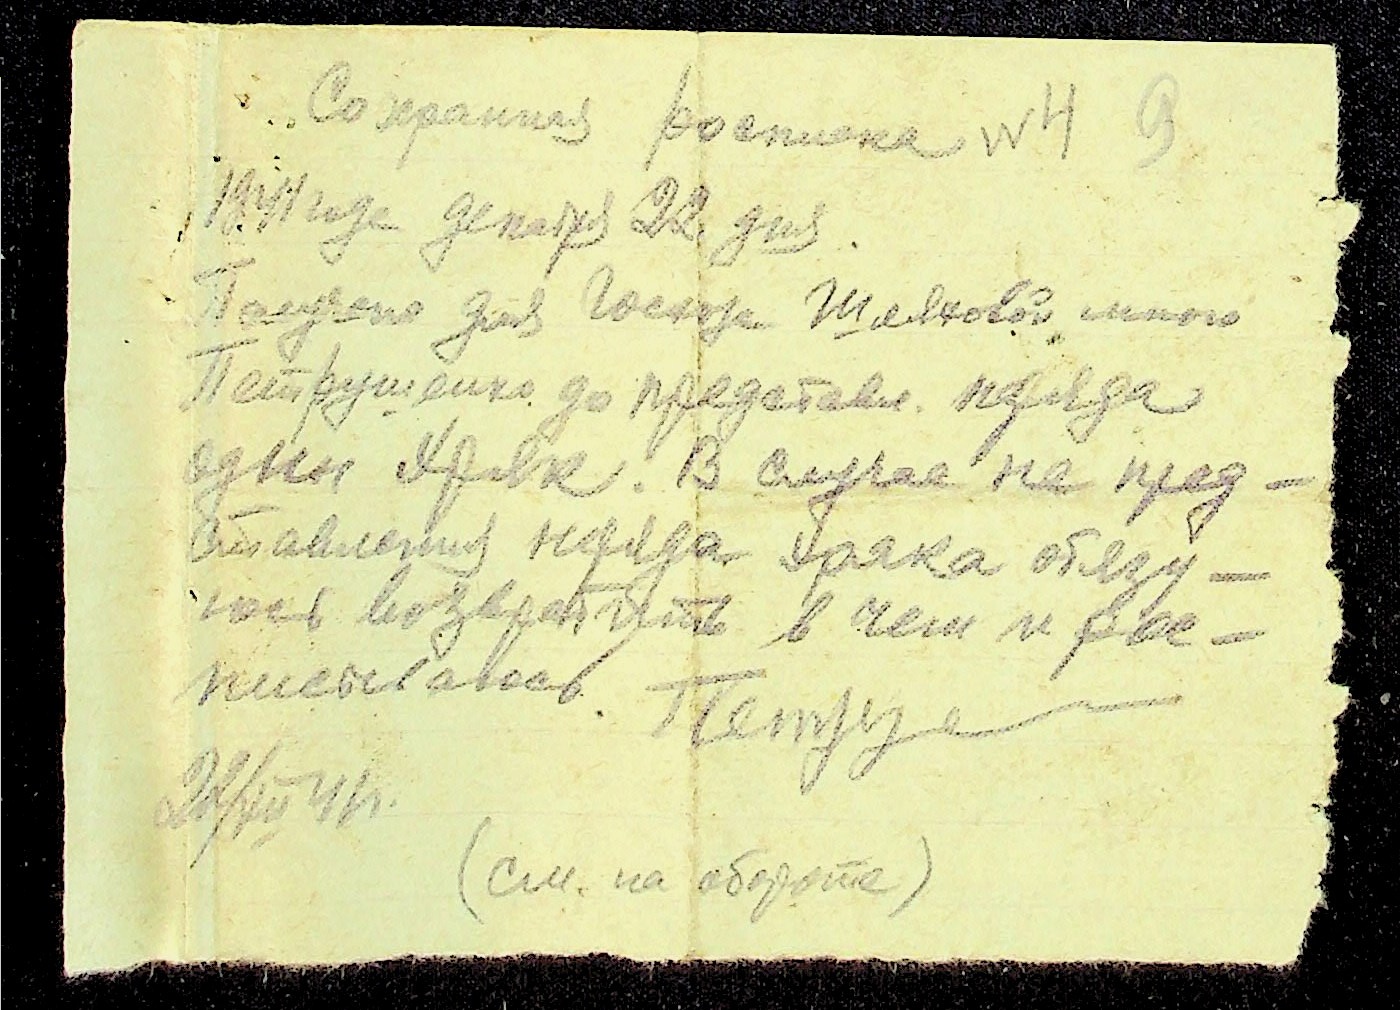 Сохранная росписка №4 9
1941 года декабря 22 дня.
Получено для Госхоза мною
Петрушенко до представл. наряда
один Хряк. В случае не пред–
ставления наряда Хряка обязу–
юсь возвратить в чем и рос–
писываюсь.
22/XII 41г.
(см. на обороте)